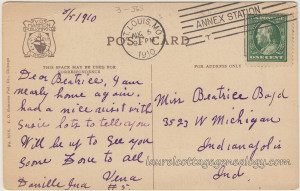 8/5 1910
3-JES
ST. LOUIS, MO.
AUG 5
1910
ANNEX STATION
POST CARD
THIS SPACE MAY BE USED FOR
CORRESPONDENCE
Dear Beatrice, I am
nearly home again.
had a nice visit with
Susie lots to tell you
Will be up to see you
soone Love to all
Vena
Danville Ind
#5
Miss Beatrice Boyd
3523 W Michigan
Indianapolis
Ind.
laurelcottagegenealogy.com